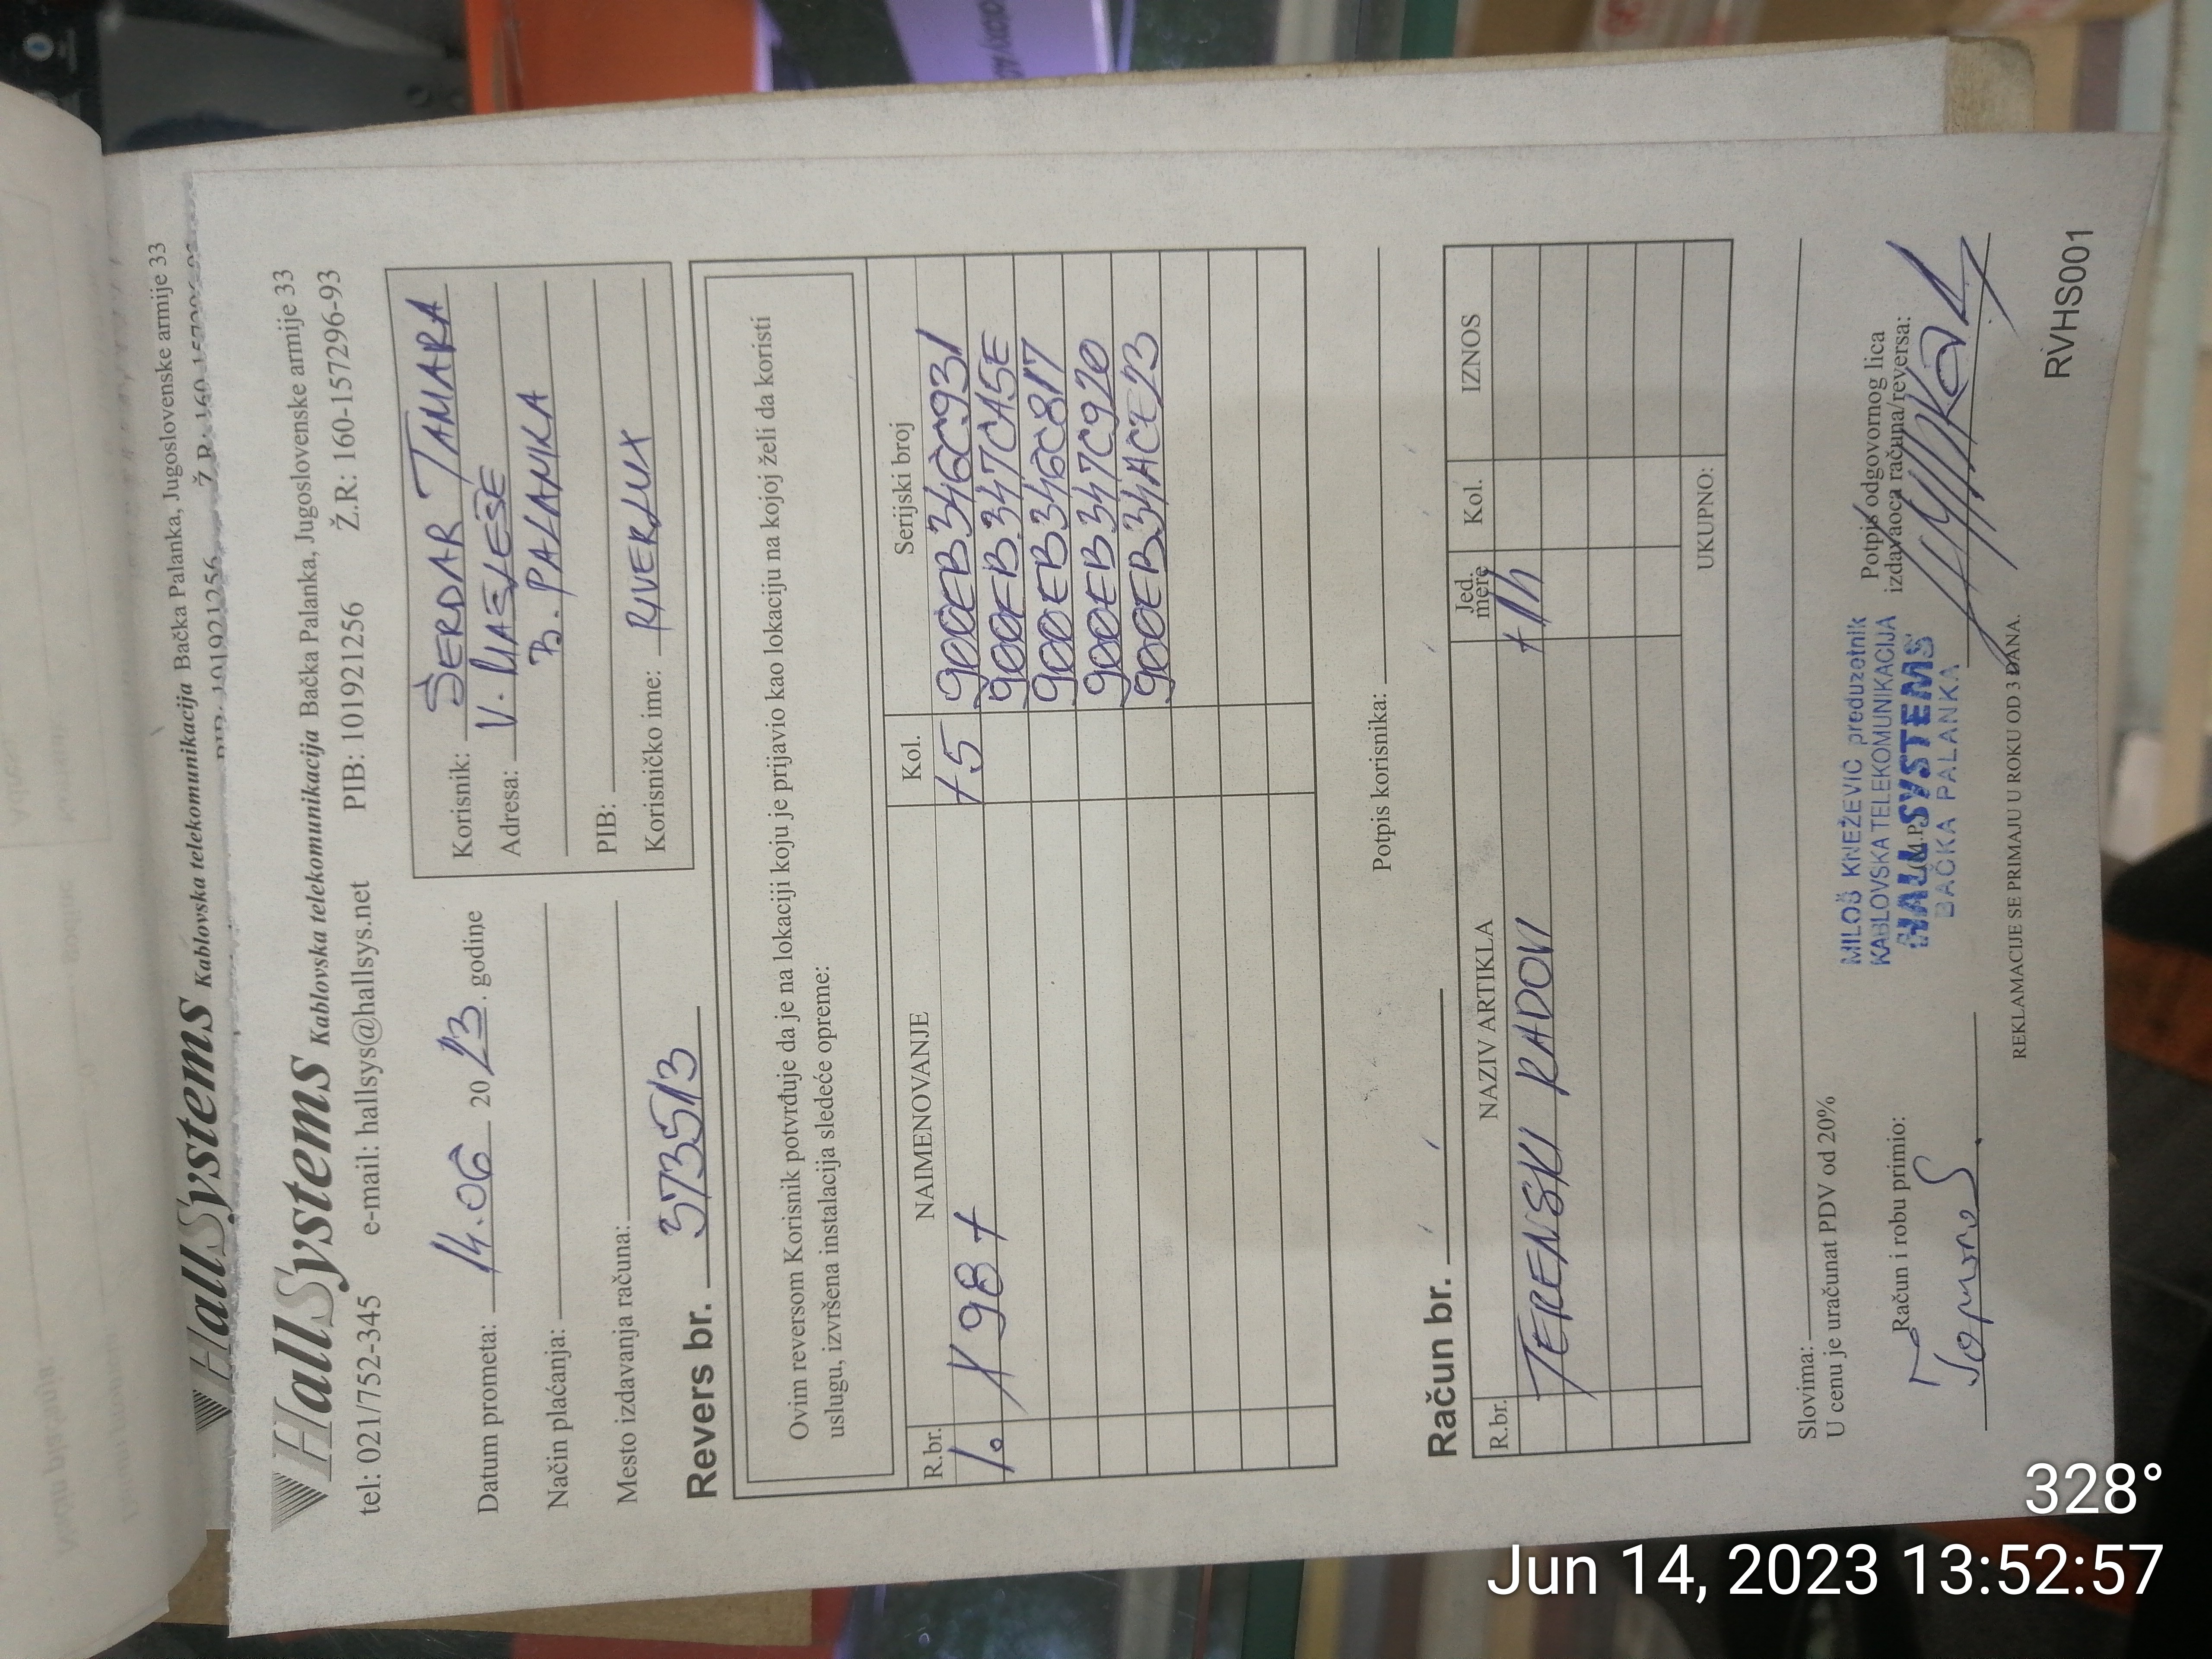 HallSystems Kablovska telekomunikacija Bačka Palanka, Jugoslovenske armije 33
PIB: 101921256 Ž.R: 160-157296-93
HallSystems Kablovska telekomunikacija Bačka Palanka, Jugoslovenske armije 33
tel: 021/752-345 e-mail: hallsys@hallsys.net PIB: 101921256 Ž.R: 160-157296-93
Datum prometa: 14.06 2023. godine
Način plaćanja:
Mesto izdavanja računa:
Korisnik: ŠERDAR TAMARA
Adresa: V. MASLEŠE
B. PALANKA
PIB:
Korisničko ime: RIVERLUX
Revers br. 373513
Ovim reversom Korisnik potvrđuje da je na lokaciji koju je prijavio kao lokaciju na kojoj želi da koristi
uslugu, izvršena instalacija sledeće opreme:
R.br. NAIMENOVANJE Kol. Serijski broj
1. X98+ +5 900EB346C931
900EB347CA5E
900EB346C817
900EB347C920
900EB34ACE23
Potpis korisnika:
Račun br.
R.br. NAZIV ARTIKLA Jed. mere Kol. IZNOS
TERENSKI RADOVI +1h
UKUPNO:
Slovima:
U cenu je uračunat PDV od 20%
Račun i robu primio:
MILOŠ KNEŽEVIĆ preduzetnik
KABLOVSKA TELEKOMUNIKACIJA
HALL SYSTEMS
BAČKA PALANKA
(M.P.)
Potpis odgovornog lica
izdavaoca računa/reversa:
REKLAMACIJE SE PRIMAJU U ROKU OD 3 DANA.
RVHS001
328°
Jun 14, 2023 13:52:57